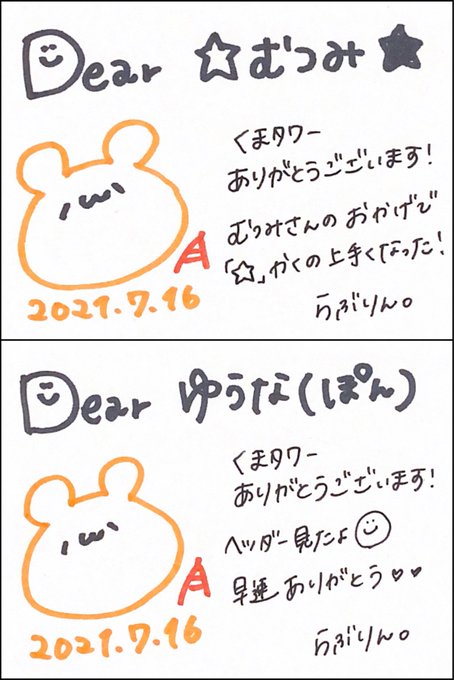 Dear ☆むつみ★
くまタワー
ありがとうございます!
むつみさんの おかげで
「☆」かくの上手くなった!
A
2021.7.16
らぶりん。
Dear ゆうな(ぽん)
くまタワー
ありがとうございます!
ヘッダー見たよ
早速 ありがとう♡♡
A
2021.7.16
らぶりん。